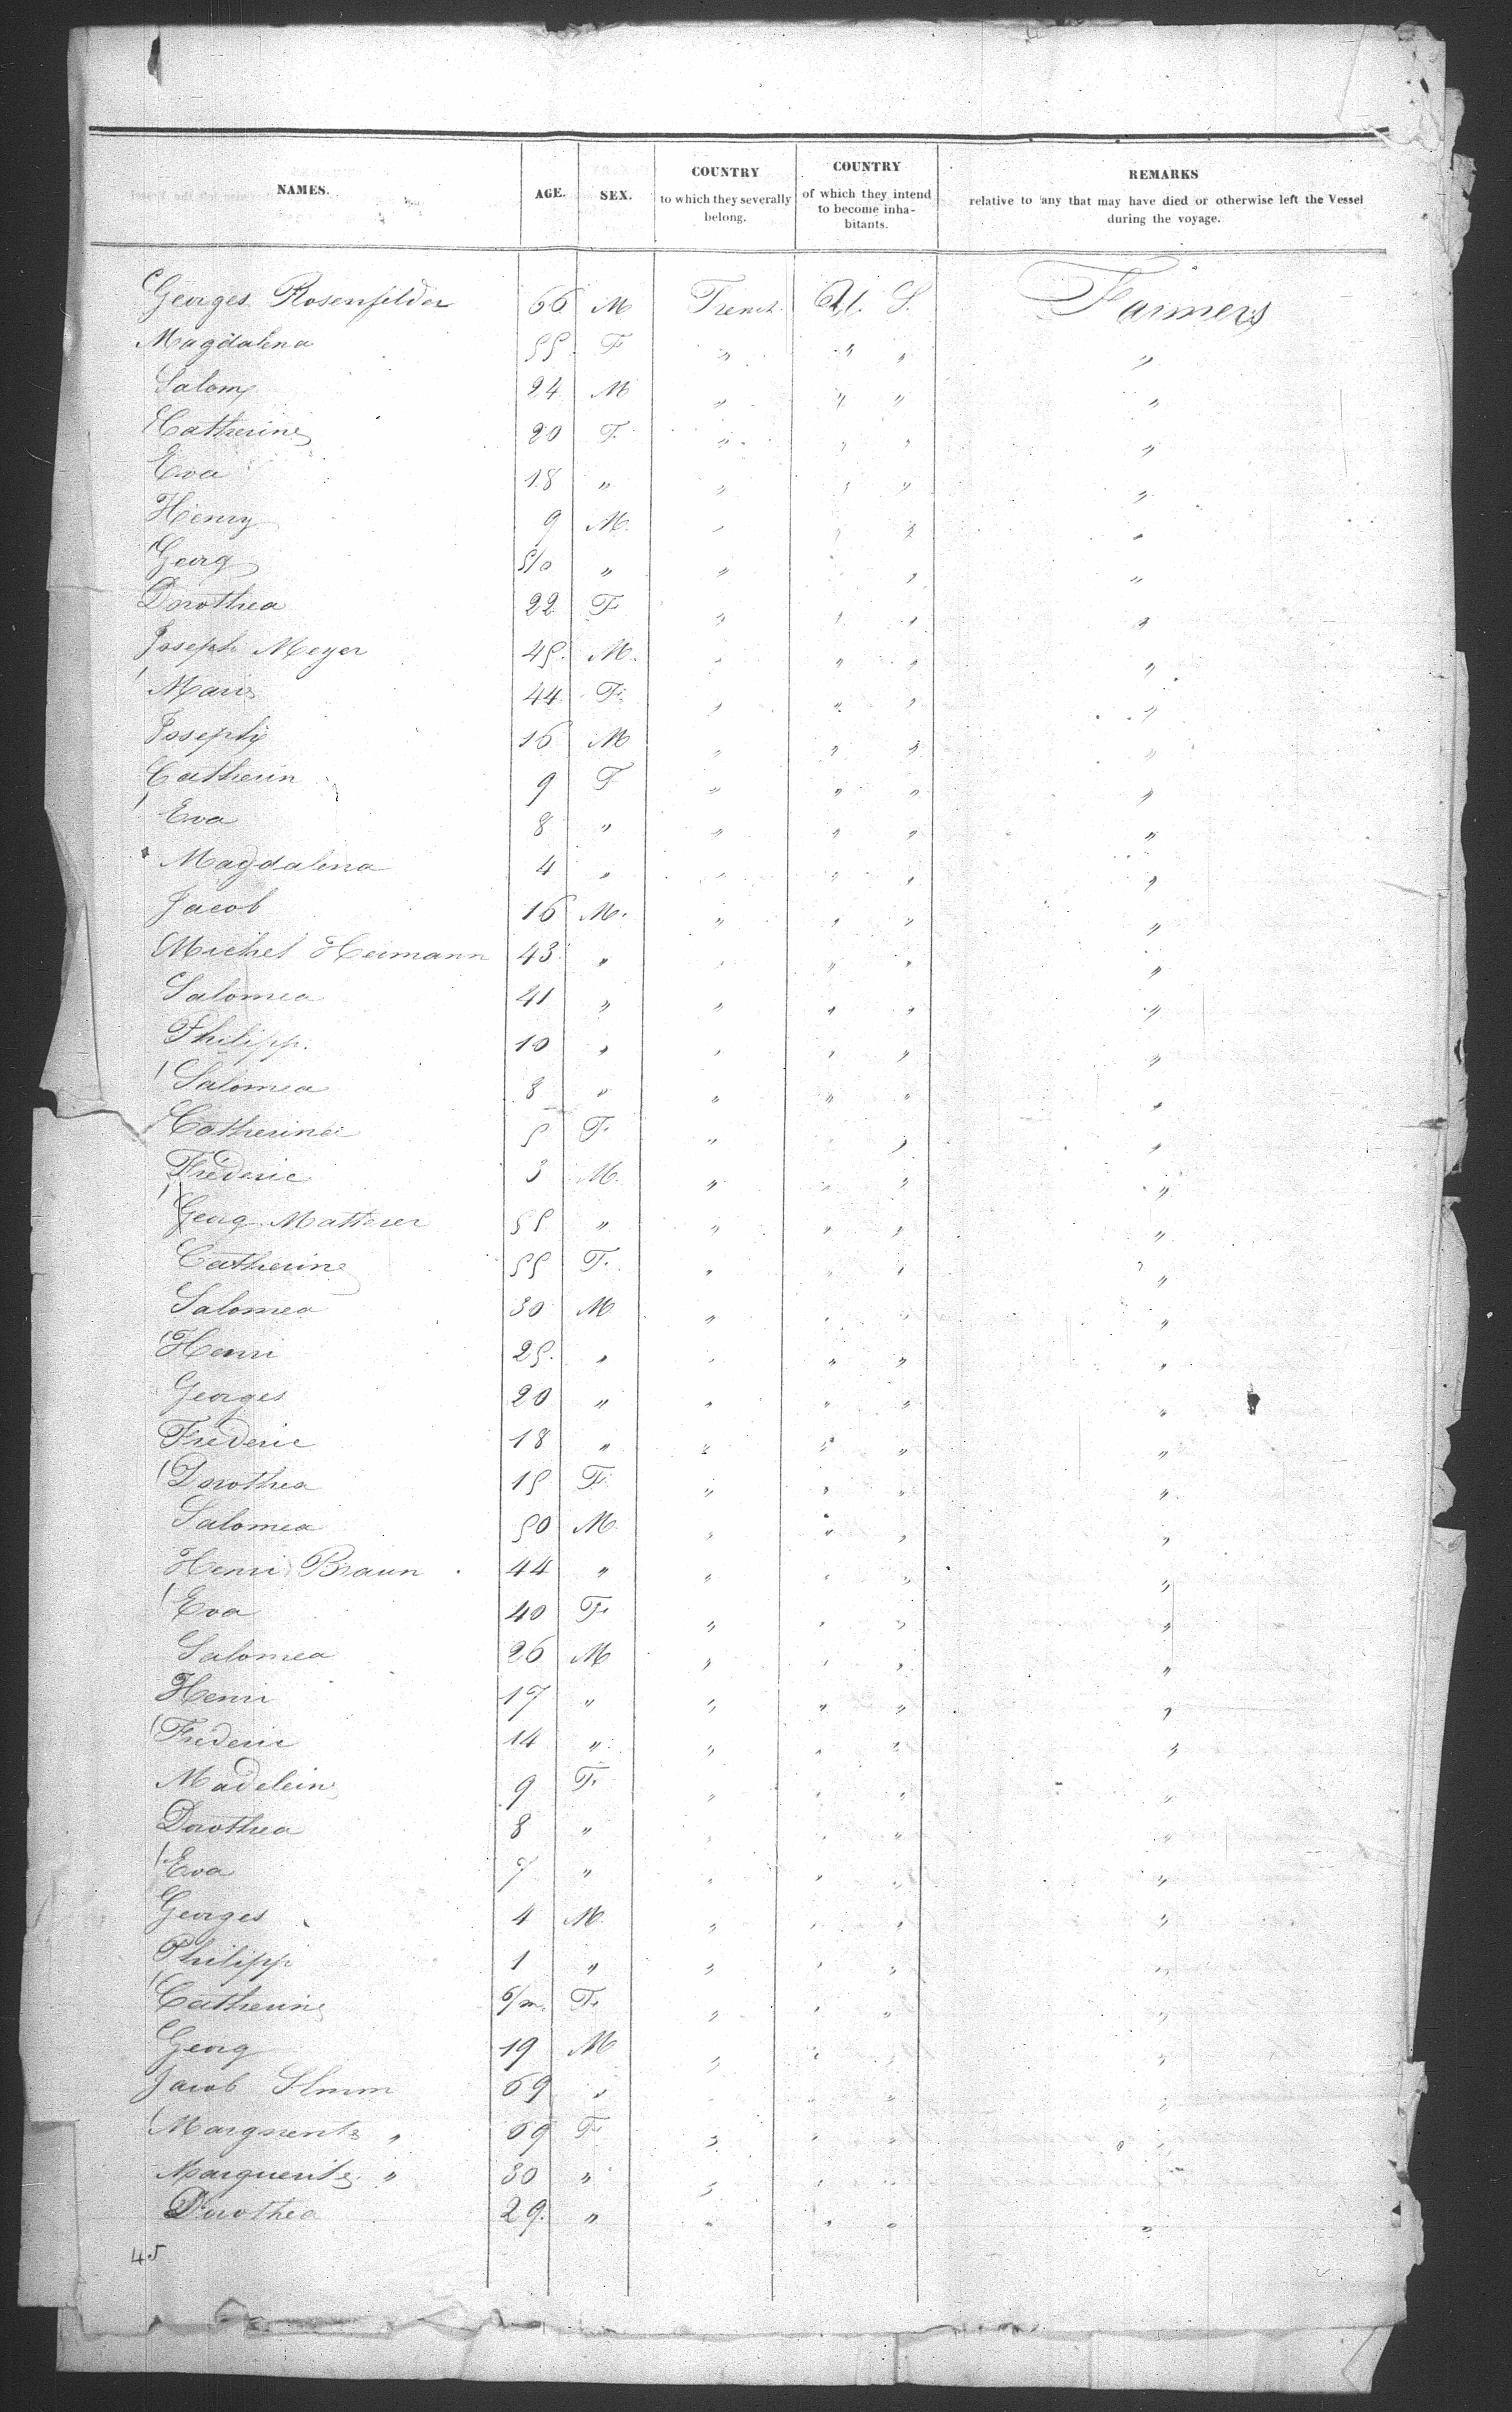 NAMES. AGE. SEX. COUNTRY to which they severally belong. COUNTRY of which they intend to become inha-bitants. REMARKS relative to any that may have died or otherwise left the Vessel during the voyage.
Georges Rosenfelder 66 M French U. S. Farmers
Magdalena 55 F " " " "
Salome 24 M " " " "
Catherine 20 F " " " "
Eva 18 " " " " "
Henry 9 M. " " " "
Georg " " " "
Dorothea 22 F " " " "
Joseph Meyer 45. M. " " " "
Marie 44 F. " " " "
Joseph 16 M " " " "
Catherin 9 F " " " "
Eva 8 " " " " "
Magdalena 4 " " " " "
Jacob 16 M. " " " "
Michel Heimann 43 " " " " "
Salomea 41 " " " " "
Philipp. 10 " " " " "
Salomea 8 " " " " "
Catherine 5 F. " " "
Frederic 3 M. " " " "
Georg Matterer 55 " " " " "
Catherine 55 F. " " " "
Salomea 30 M " " " "
Henri 25. " " " " "
Georges 20 " " " " "
Frederic 18 " " " " "
Dorothea 15 F. " " " "
Salomea 50 M. " " " "
Henri Braun 44 " " " " "
Eva 40 F. " " " "
Salomea 26 M " " " "
Henri 17 " " " " "
Frederic 14 " " " " "
Madeleine 9 F. " " " "
Dorothea 8 " " " " "
Eva 7 " " " " "
Georges 4 M. " " " "
Philipp 1 " " " " "
Catherine 6/m. F. " " " "
Georg 19 M " " " "
Jacob 69 " " " " "
Marguerite " 69 F " " " "
Marguerite " 30 " " " "
Dorothea 29. " " " " "
45